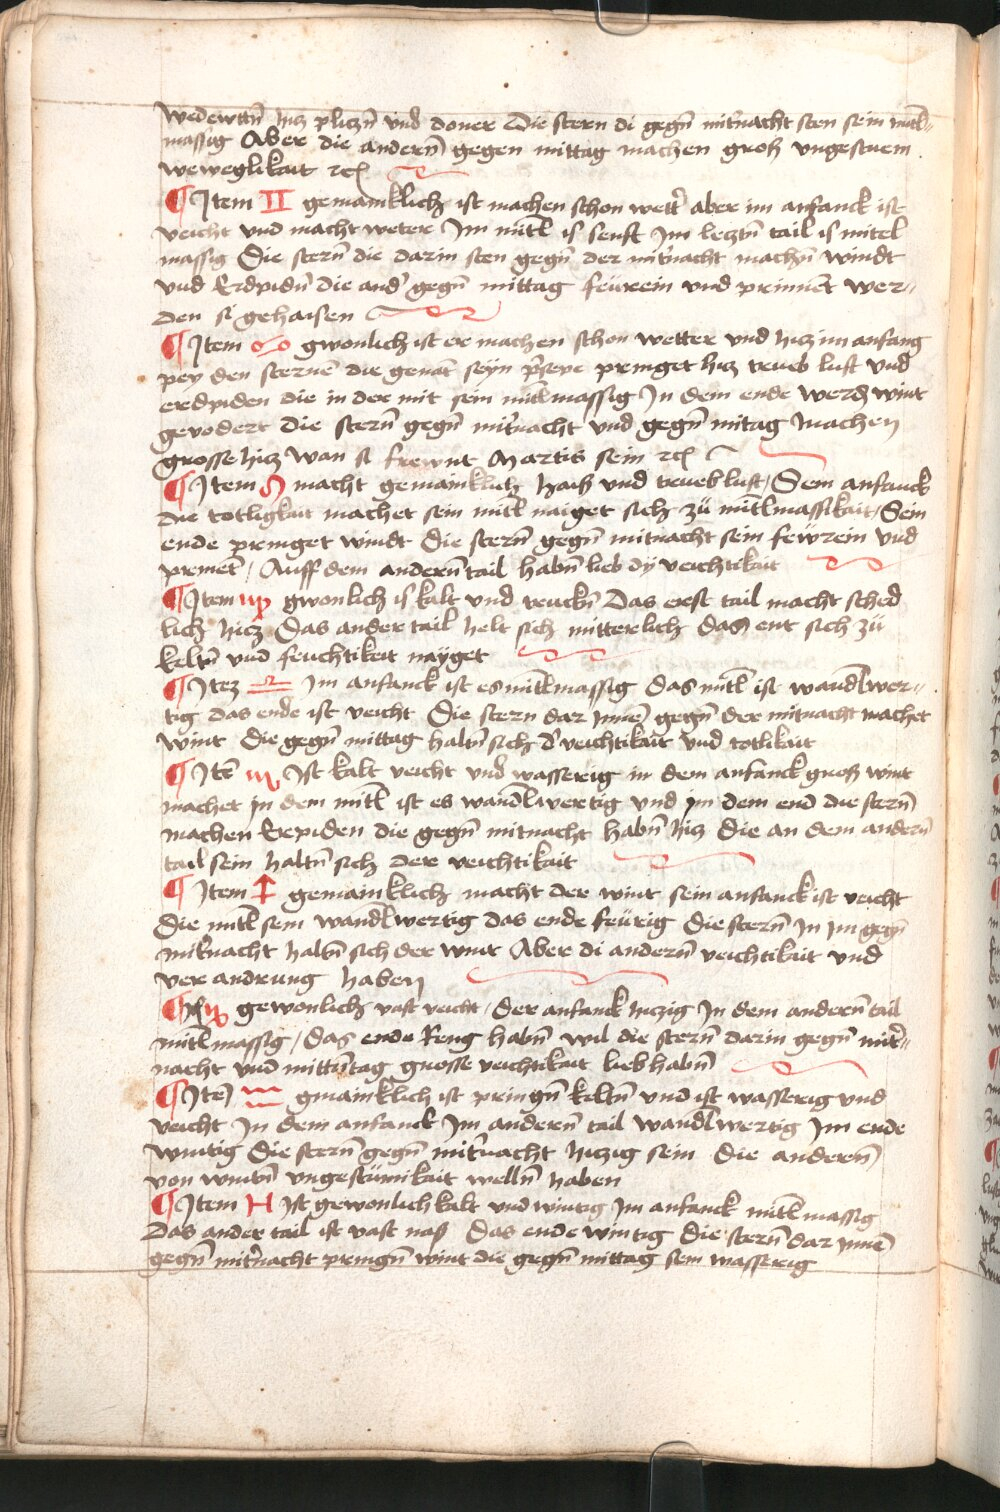 wedewttn̄ hicz pliczn̄ vnd doner Die stern di gegn̄ mitnacht sten sein mitl-
massig Aber die andern̄ gegen mittag machen groß vngestuem
weweglikait ꝛcꝭ
¶ Item ♊ gemainklich ist machen schon wett̄ aber im anfanck ist
veicht vnd macht weter Im mitl̄ is senft Im leczt̄n tail is mitel
massig Die stern̄ die darin sten gegn̄ der mitnacht machn̄ windt
vnd Erdpidn̄ die and̄ gegn̄ mittag feẅrein vnd prinnēt wer-
den si gehaisen
¶ Item ♋ gwonlich ist er machen schon wetter vnd hicz im anfang
pey den sternē die genāt seyn p̄sepe pringet hicz trueb luft vnd
erdpiden die in der mit sein mitl̄massig In dem ende werdn̄ wint
gevodert Die stern̄ gegn̄ mitnacht vnd gegn̄ mitag machen
grosse hicz wan si frewnt Martis sein ꝛcꝭ
¶ Item ♌ macht gemainklich haiß vnd trueb luft / Sein anfanck
die totligkait machet sein mitl̄ naiget sich zü mitl̄massikait / Sein
ende pringet windt Die stern̄ gegn̄ mitnacht sein feẅrein vnd
prinnēt / Auff dem andern̄ tail habn̄ lieb dÿ veichtikait
¶ Item ♍ gwonlich is kalt vnd truckn̄ Das erst tail macht sched
lich hicz Das ander tail helt sich mitterlich das ent sich zü
keltn̄ vnd feuchtikeit nayget
¶ Itez ♎ Im anfanck ist es mitl̄massig das mitl̄ ist wandl̄wer-
tig das ende ist veicht Die stern dar innē gegn̄ der mitnacht machet
wint Die gegn̄ mittag haltn̄ sich d̄ veichtikait vnd totlikait
¶ Itē ♏ Ist kalt veicht vnd wasserig in dem anfanck groß wint
machet in dem mitl̄ ist es wandl̄wertig vnd im dem end die stern̄
machen Erpiden die gegn̄ mitnacht habn̄ hicz Die an dem andern̄
tail sein haltn̄ sich der veichtikait
¶ Item ♐ gemainklich macht der wint sein anfanck ist veicht
Die mitl̄ sein wandl̄wertig das ende feürig Die stern̄ In im gegn̄
mitnacht haltn̄ sich der wint Aber di andern̄ veichtikait vnd
ver andrung haben
¶ ♑ gewonlich vast veicht / Der anfanck hiczig In dem andern̄ tail
mitl̄massig / Das ende Reng habn̄ wil die stern̄ darin gegn̄ mit̄-
nacht vnd mitt̄ntag grosse veichtikait lieb habn̄
¶ Itē ♒ gmainklich ist pringn̄ keltn̄ vnd ist wasserig vnd
veicht In dem anfanck Im andern̄ tail wandl̄wertig Im ende
wintig Die stern̄ gegn̄ mitnacht hiczig sein Die andern̄
von wintn̄ vngestümikait welln̄ haben
¶ Item ♓ Ist gewonlich kalt vnd wintig Im anfanck mitl̄massig
Das ander tail ist vast naß Das ende wintig Die stern̄ dar innē
gegn̄ mitnacht pringn̄ wint die gegn̄ mittag sein wasserig